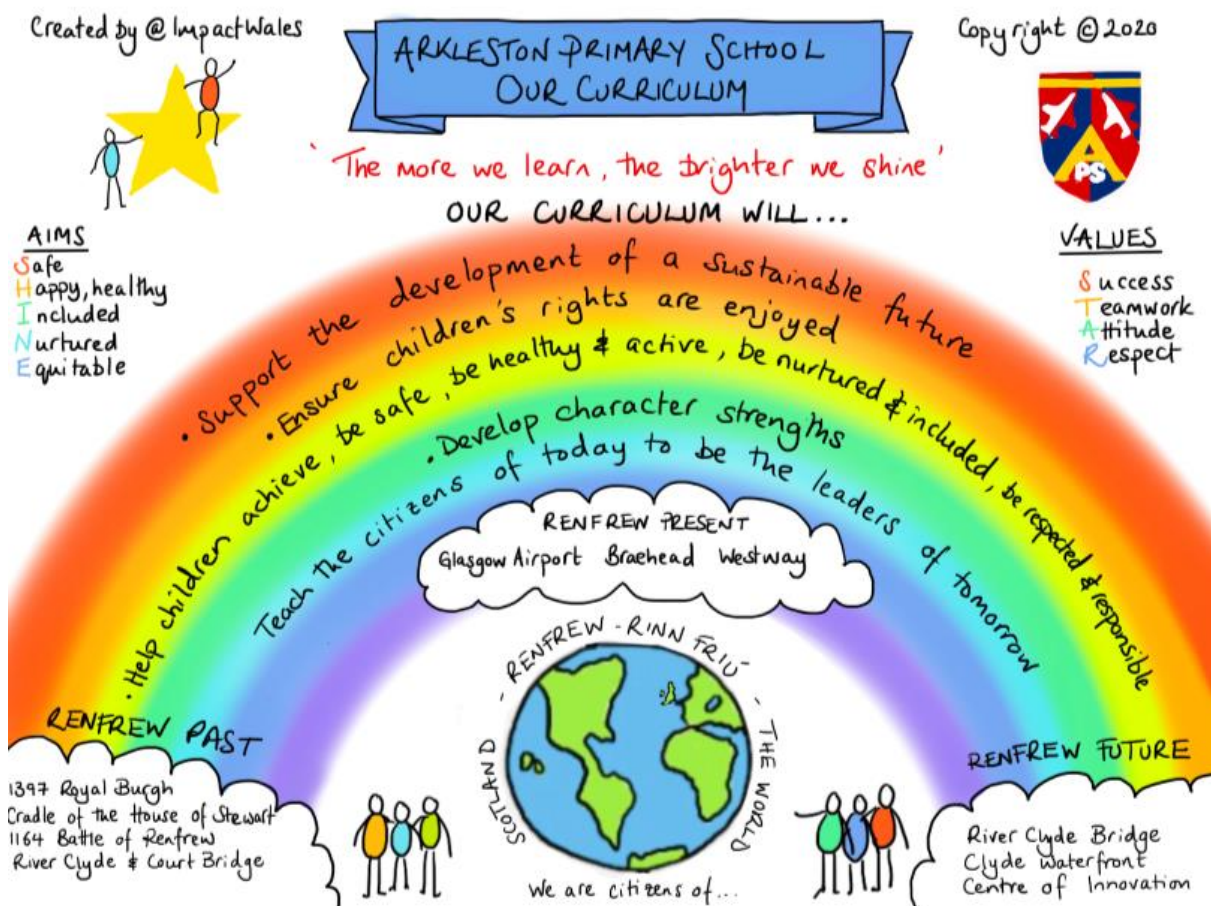 Created by @ImpactWales
ARKLESTON PRIMARY SCHOOL
OUR CURRICULUM
Copyright © 2020
'The more we learn, the brighter we shine'
OUR CURRICULUM WILL...
AIMS
Safe
Happy, healthy
Included
Nurtured
Equitable
A
PS
VALUES
Success
Teamwork
Attitude
Respect
• Support the development of a sustainable future
• Ensure children's rights are enjoyed
• Help children achieve, be safe, be healthy & active, be nurtured & included, be respected & responsible
• Develop character strengths
Teach the citizens of today to be the leaders of tomorrow
RENFREW PRESENT
Glasgow Airport Braehead Westway
RENFREW PAST
1397 Royal Burgh
Cradle of the House of Stewart
1164 Battle of Renfrew
River Clyde & Court Bridge
SCOTLAND - RENFREW - RINN FRIÙ - THE WORLD
We are citizens of...
RENFREW FUTURE
River Clyde Bridge
Clyde Waterfront
Centre of Innovation